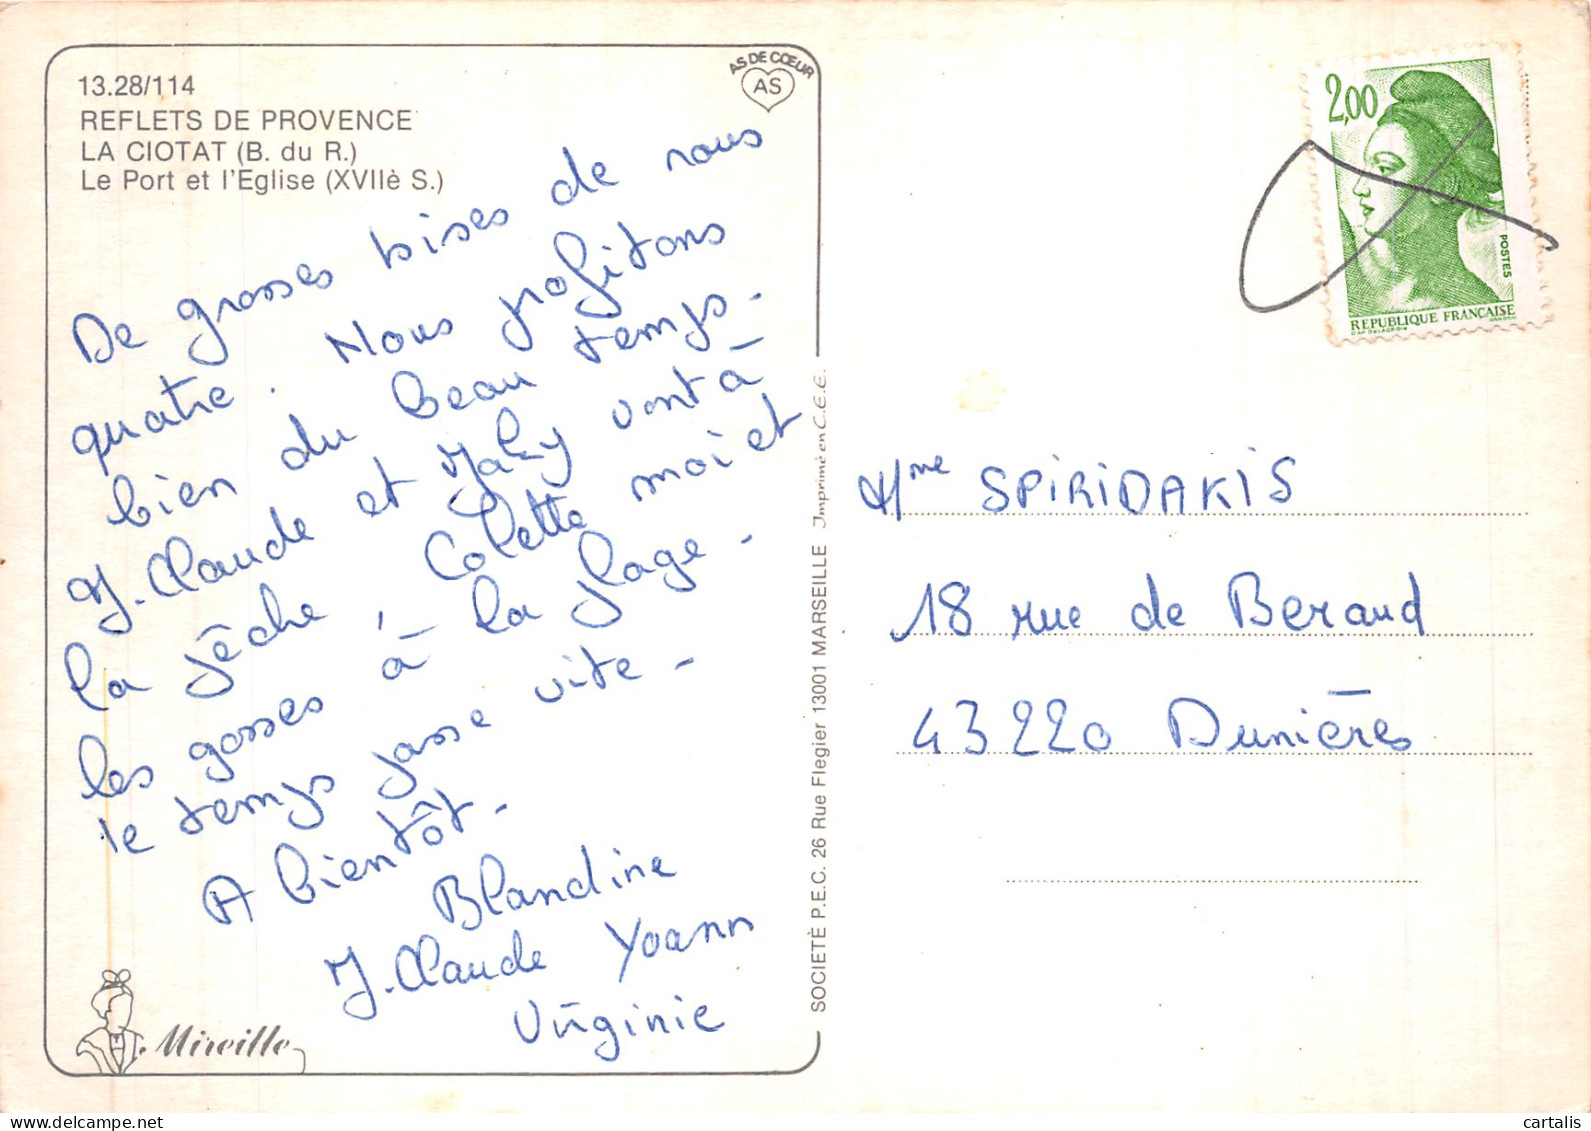 13.28/114
REFLETS DE PROVENCE
LA CIOTAT (B. du R.)
Le Port et l'Eglise (XVIIè S.)
AS DE CŒUR
AS
De grosses bises de nous
quatre. Nous profitons
bien du beau temps.
J. Claude et Jaky vont à
la pêche, Colette moi et
les gosses à la plage.
le temps passe vite.
A bientôt.
Blandine
J. Claude Yoann
Virginie
Mireille
SOCIETÉ P.E.C. 26 Rue Flegier 13001 MARSEILLE Imprimé en C.E.E.
2,00
POSTES
REPUBLIQUE FRANÇAISE
Mme SPIRIDAKIS
18 rue de Beraud
43220 Dunières
www.delcampe.net
cartalis